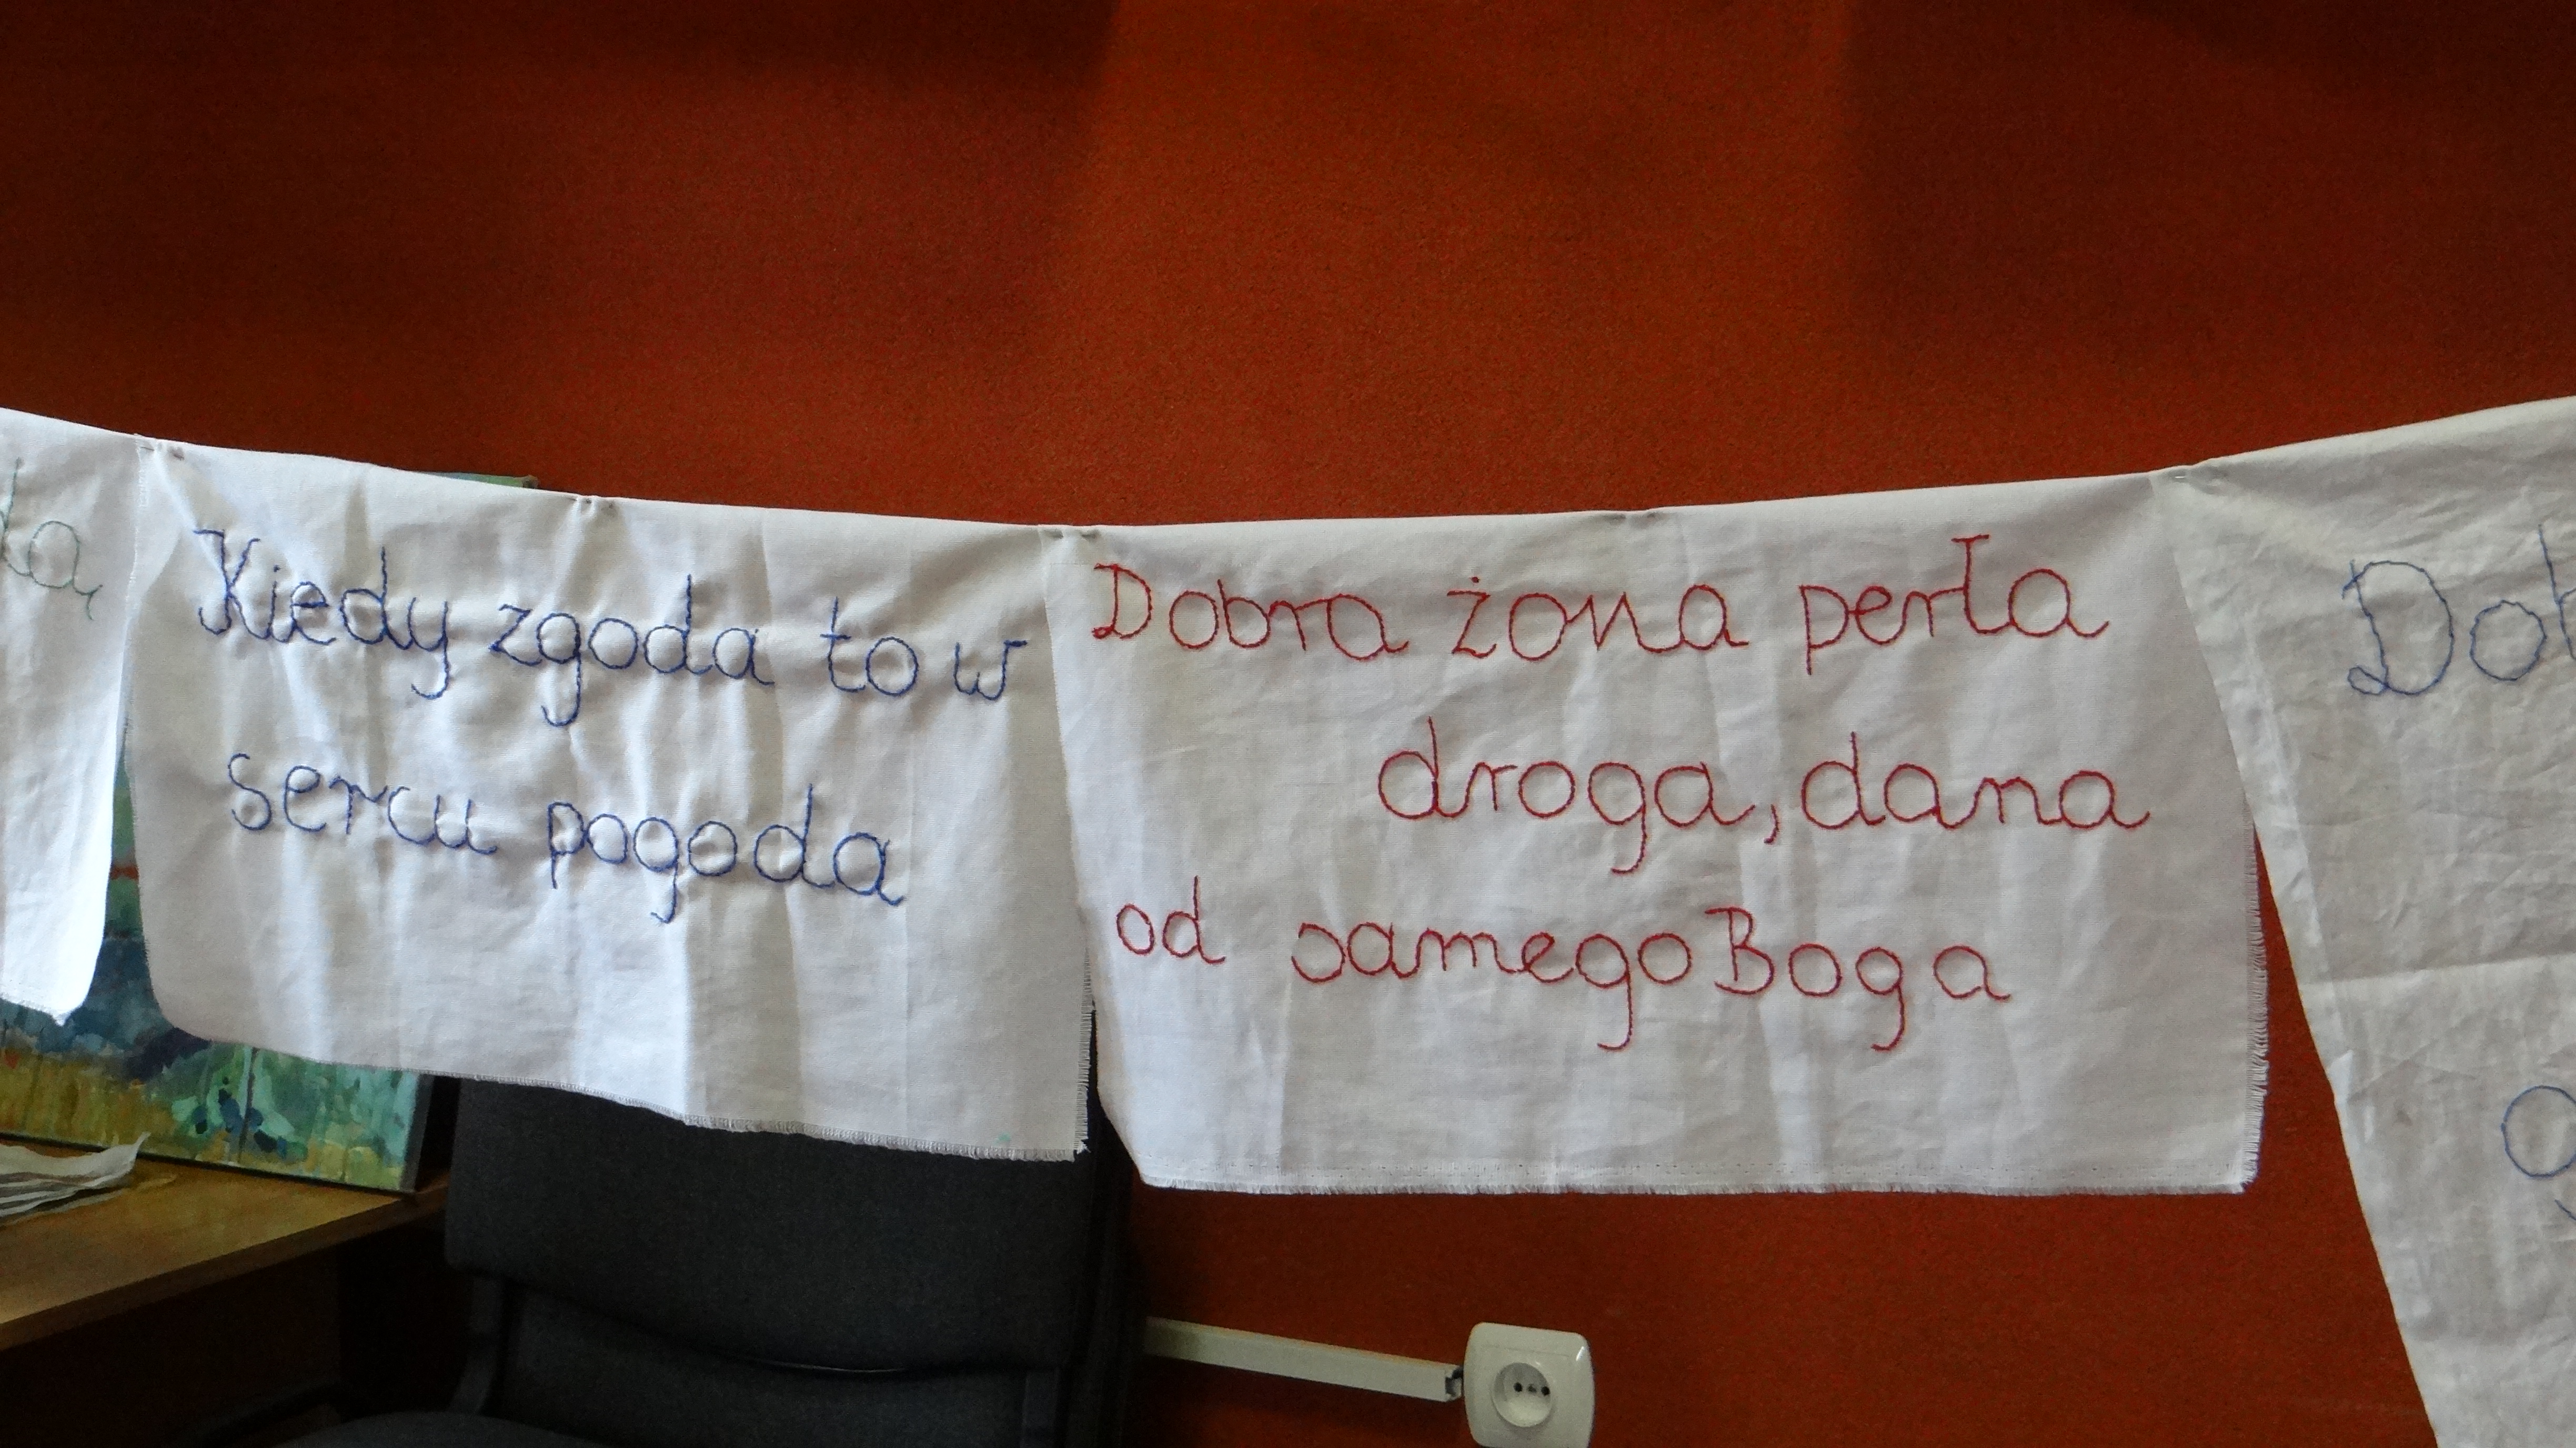 Kiedy zgoda to w
sercu pogoda
Dobra żona perła
droga, dana
od samego Boga